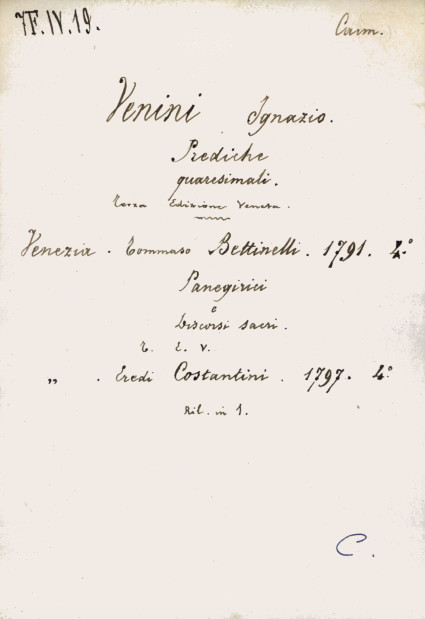 7F.IV.19.
Venini Ignazio.
Prediche
quaresimali.
Terza Edizione Veneta.
Venezia. Tommaso Bettinelli. 1791. 4.°
Panegirici
e
Discorsi sacri.
T. E. V.
„ . Eredi Costantini. 1797. 4°
Ril. in 1.
C.